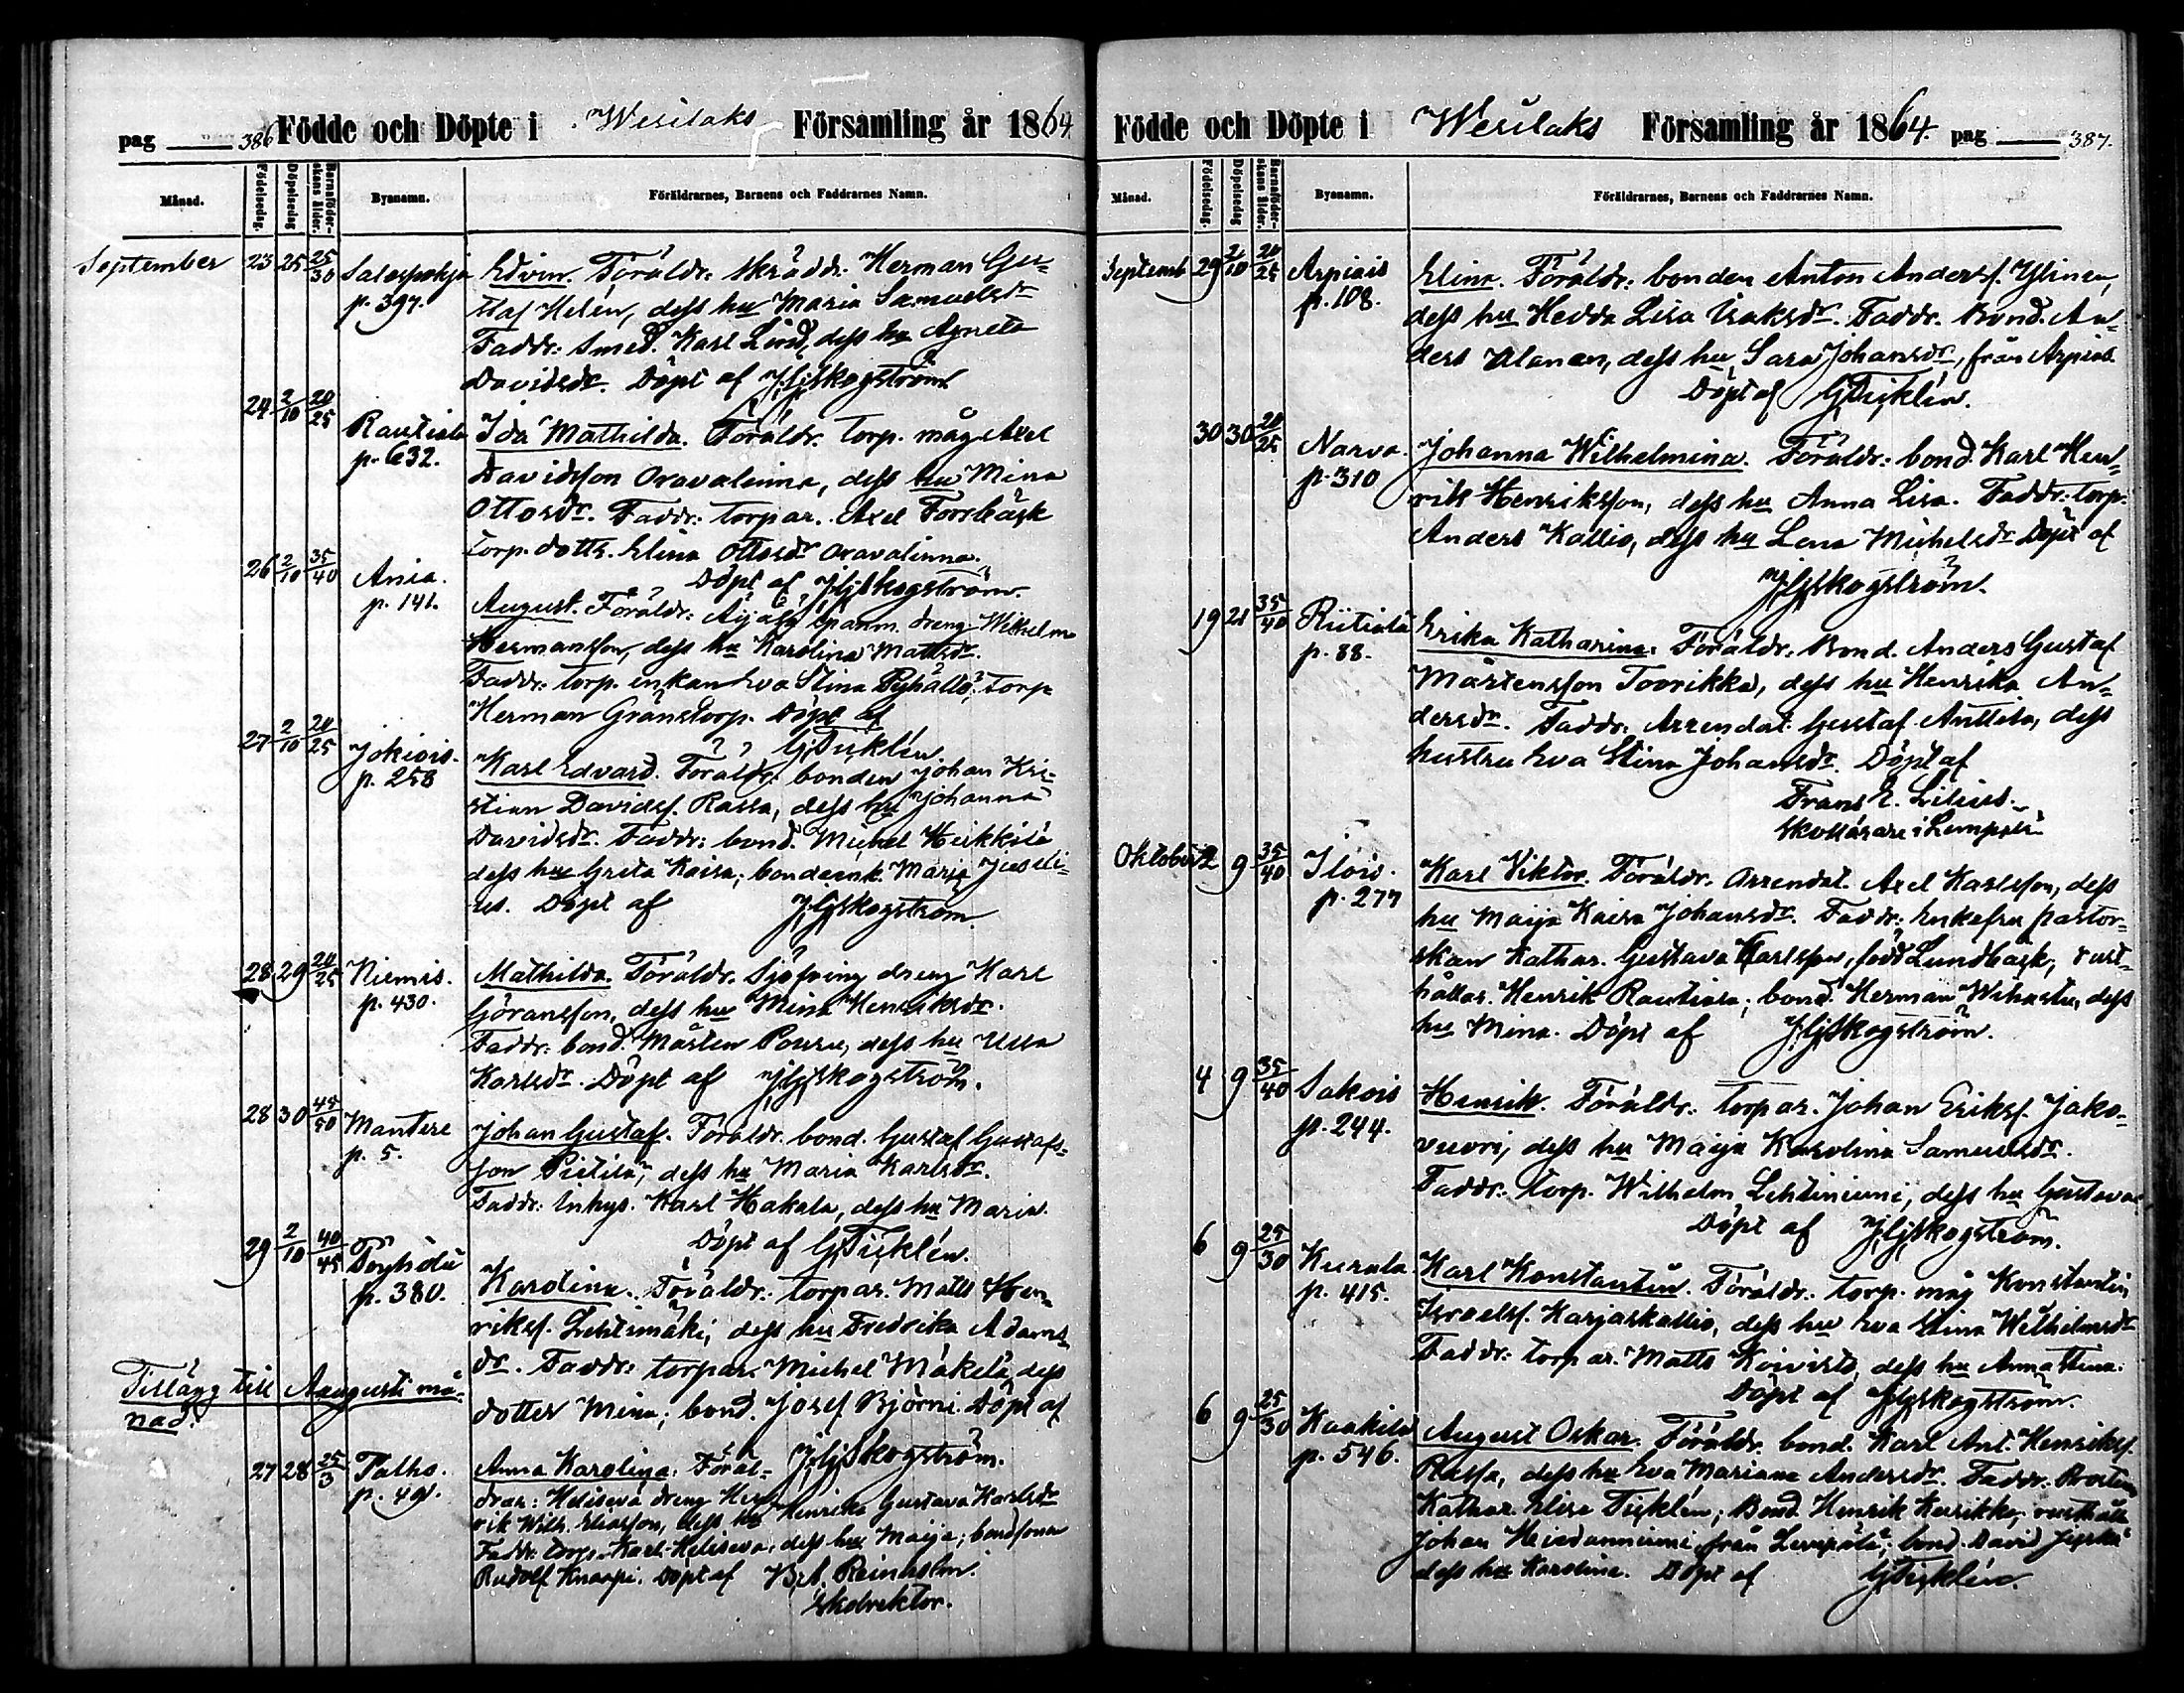 pag 386 Födde och Döpte i Wesilaks Församling år 1864.
Månad. Födelsedag. Döpelsedag Barnaföder-skans ålder. Byanamn. Föräldrarnes, Barnens och Faddrarnes Namn.
September 23 25 25/30 Salospohja Edvin. Föräldr: skräddr. Herman Gu-
p. 397. staf Helén, dess hu Maria Samuelsdr
Faddr: Smed. Karl Lind, dess hu Agneta
Davidsdr. Döpt af J.G.Skogström
24 2/10 20/25 Rautiala Ida Mathilda. Föräldr. torp. måg Axel
p. 632. Davidsson Oravalinna, dess hu Mina
Ottosdr. Faddr: torpar. Axel Forsbäck
torp. dottr. Elina Ottosdr Oravalinna.
Döpt af J.G.Skogström.
26 2/10 35/40 Ania. August. Föräldr: dreng Wilhelm
p. 141. Hermansson, dess hu Karolina Mattsdr.
Faddr: torp. enkan Eva Stina Pyhältö; torp
Herman Gränstorp. Döpt af
G.Ticklén.
27 2/10 20/25 Jokiois. Karl Edvard. Föräldr: bonden Johan Kri-
p. 258 stian Davidss. Rassa, dess hu Johanna
Davidsdr. Faddr: bond. Michel Heikkilä
dess hu Greta Kaisa; bondeenk. Maria Juseli-
us. Döpt af J.G.Skogström.
28 29 20/25 Niemis. Mathilda. Föräldr. dreng Karl
p. 430. Göransson, dess hu Mina Henriksdr.
Faddr. bond. Mårten Pouru, dess hu Ulla
Karlsdr. Döpt af J.G.Skogström.
28 30 45/50 Mantere Johan Gustaf. Föräldr. bond. Gustaf Gustafs-
p. 5. son Pietilä, dess hu Maria Karlsdr.
Faddr: Inhys. Karl Hakala, dess hu Maria.
Döpt af G.Ticklén.
29 2/10 40/45 Karolina. Föräldr: torpar. Matts Hen-
p. 380. rikss. Lehtimäki, dess hu Fredrika Adams
dr. Faddr: torpar. Michel Mäkelä, dess
dotter Mina; bond. Josef Björni. Döpt af
J.G.Skogström.
Tillägg till Augusti må-
nad.
27 28 25/3 Palho. Anna Karolina. Föräl-
p. 491. drar: Heliseva dreng Hen-
rik Wilh. Eliasson, dess hu Henrika Gustava Karlsdr
Faddr. torp. Karl Heliseva, dess hu Maija; bondsonen
Rudolf Knaapi. Döpt af Reinholm.
Skolrektor.
Födde och Döpte i Wesilaks Församling år 1864. pag 387.
Månad. Födelsedag. Döpelsedag Barnaföder-skans ålder. Byanamn. Föräldrarnes, Barnens och Faddrarnes Namn.
Septemb 29 2/10 20/25 Arpiais Elina. Föräldr: bonden Anton Anderss. Ylinen,
p. 108. dess hu Hedda Lisa Isaksdr. Faddr. Bond. An-
ders Alanen, dess hu Sara Johansdr, från Arpiais
Döpt af G.Ticklén.
30 30 20/25 Narva. Johanna Wilhelmina. Föräldr: bond. Karl Hen-
p. 310 rik Henriksson, dess hu Anna Lisa. Faddr: torp.
Anders Kallio, dess hu Lena Michelsdr Döpt af
J.G.Skogström.
19 21 35/40 Riitiala Erika Katharina. Föräldr. Bond. Anders Gustaf
p. 88. Mårtensson Toorikka, dess hu Henrika An-
dersdr. Faddr. Arrendat. Gustaf Anttila, dess
hustru Eva Stina Johansdr. Döpt af
Frans E. Lilius.
Skollärare i Lempälä
Oktober 2 9 35/40 Ilois. Karl Viktor. Föräldr. Arrendat. Axel Karlsson, dess
p. 277 hu Maija Kaisa Johansdr. Faddr: Enkefru pastor-
skan Kathar. Gustava Karlsson, född Lundbäck; rust-
hållar. Henrik Rautiala; bond. Herman dess
hu Mina. Döpt af J.G.Skogström.
4 9 35/40 Sakois Henrik. Föräldr: torpar. Johan Erikss. Jako-
p. 244. vuori, dess hu Maija Karolina Samuelsdr.
Faddr. torp. Wilhelm Lehtiniemi, dess hu Gustava
Döpt af J.G.Skogström.
6 9 25/30 Kurala Karl Konstantin. Föräldr. torp. måg Konstantin
p. 415. Israelss. Karjaskallio, dess hu Eva Stina Wilhelmsdr
Faddr: torpar. Matts Koivisto, dess hu Anna Stina.
Döpt af J.G.Skogström.
6 9 25/30 Kaakila August Oskar. Föräldr. bond. Karl Ant. Henrikss.
p. 546. Rassa, dess hu Eva Mariana Andersdr. Faddr.
Kathar. Elise Ticklén; Bond. Henrik Kurikka; rusthåll.
Johan från Lempälä; bond. David
dess hu Karolina. Döpt af G.Ticklén.